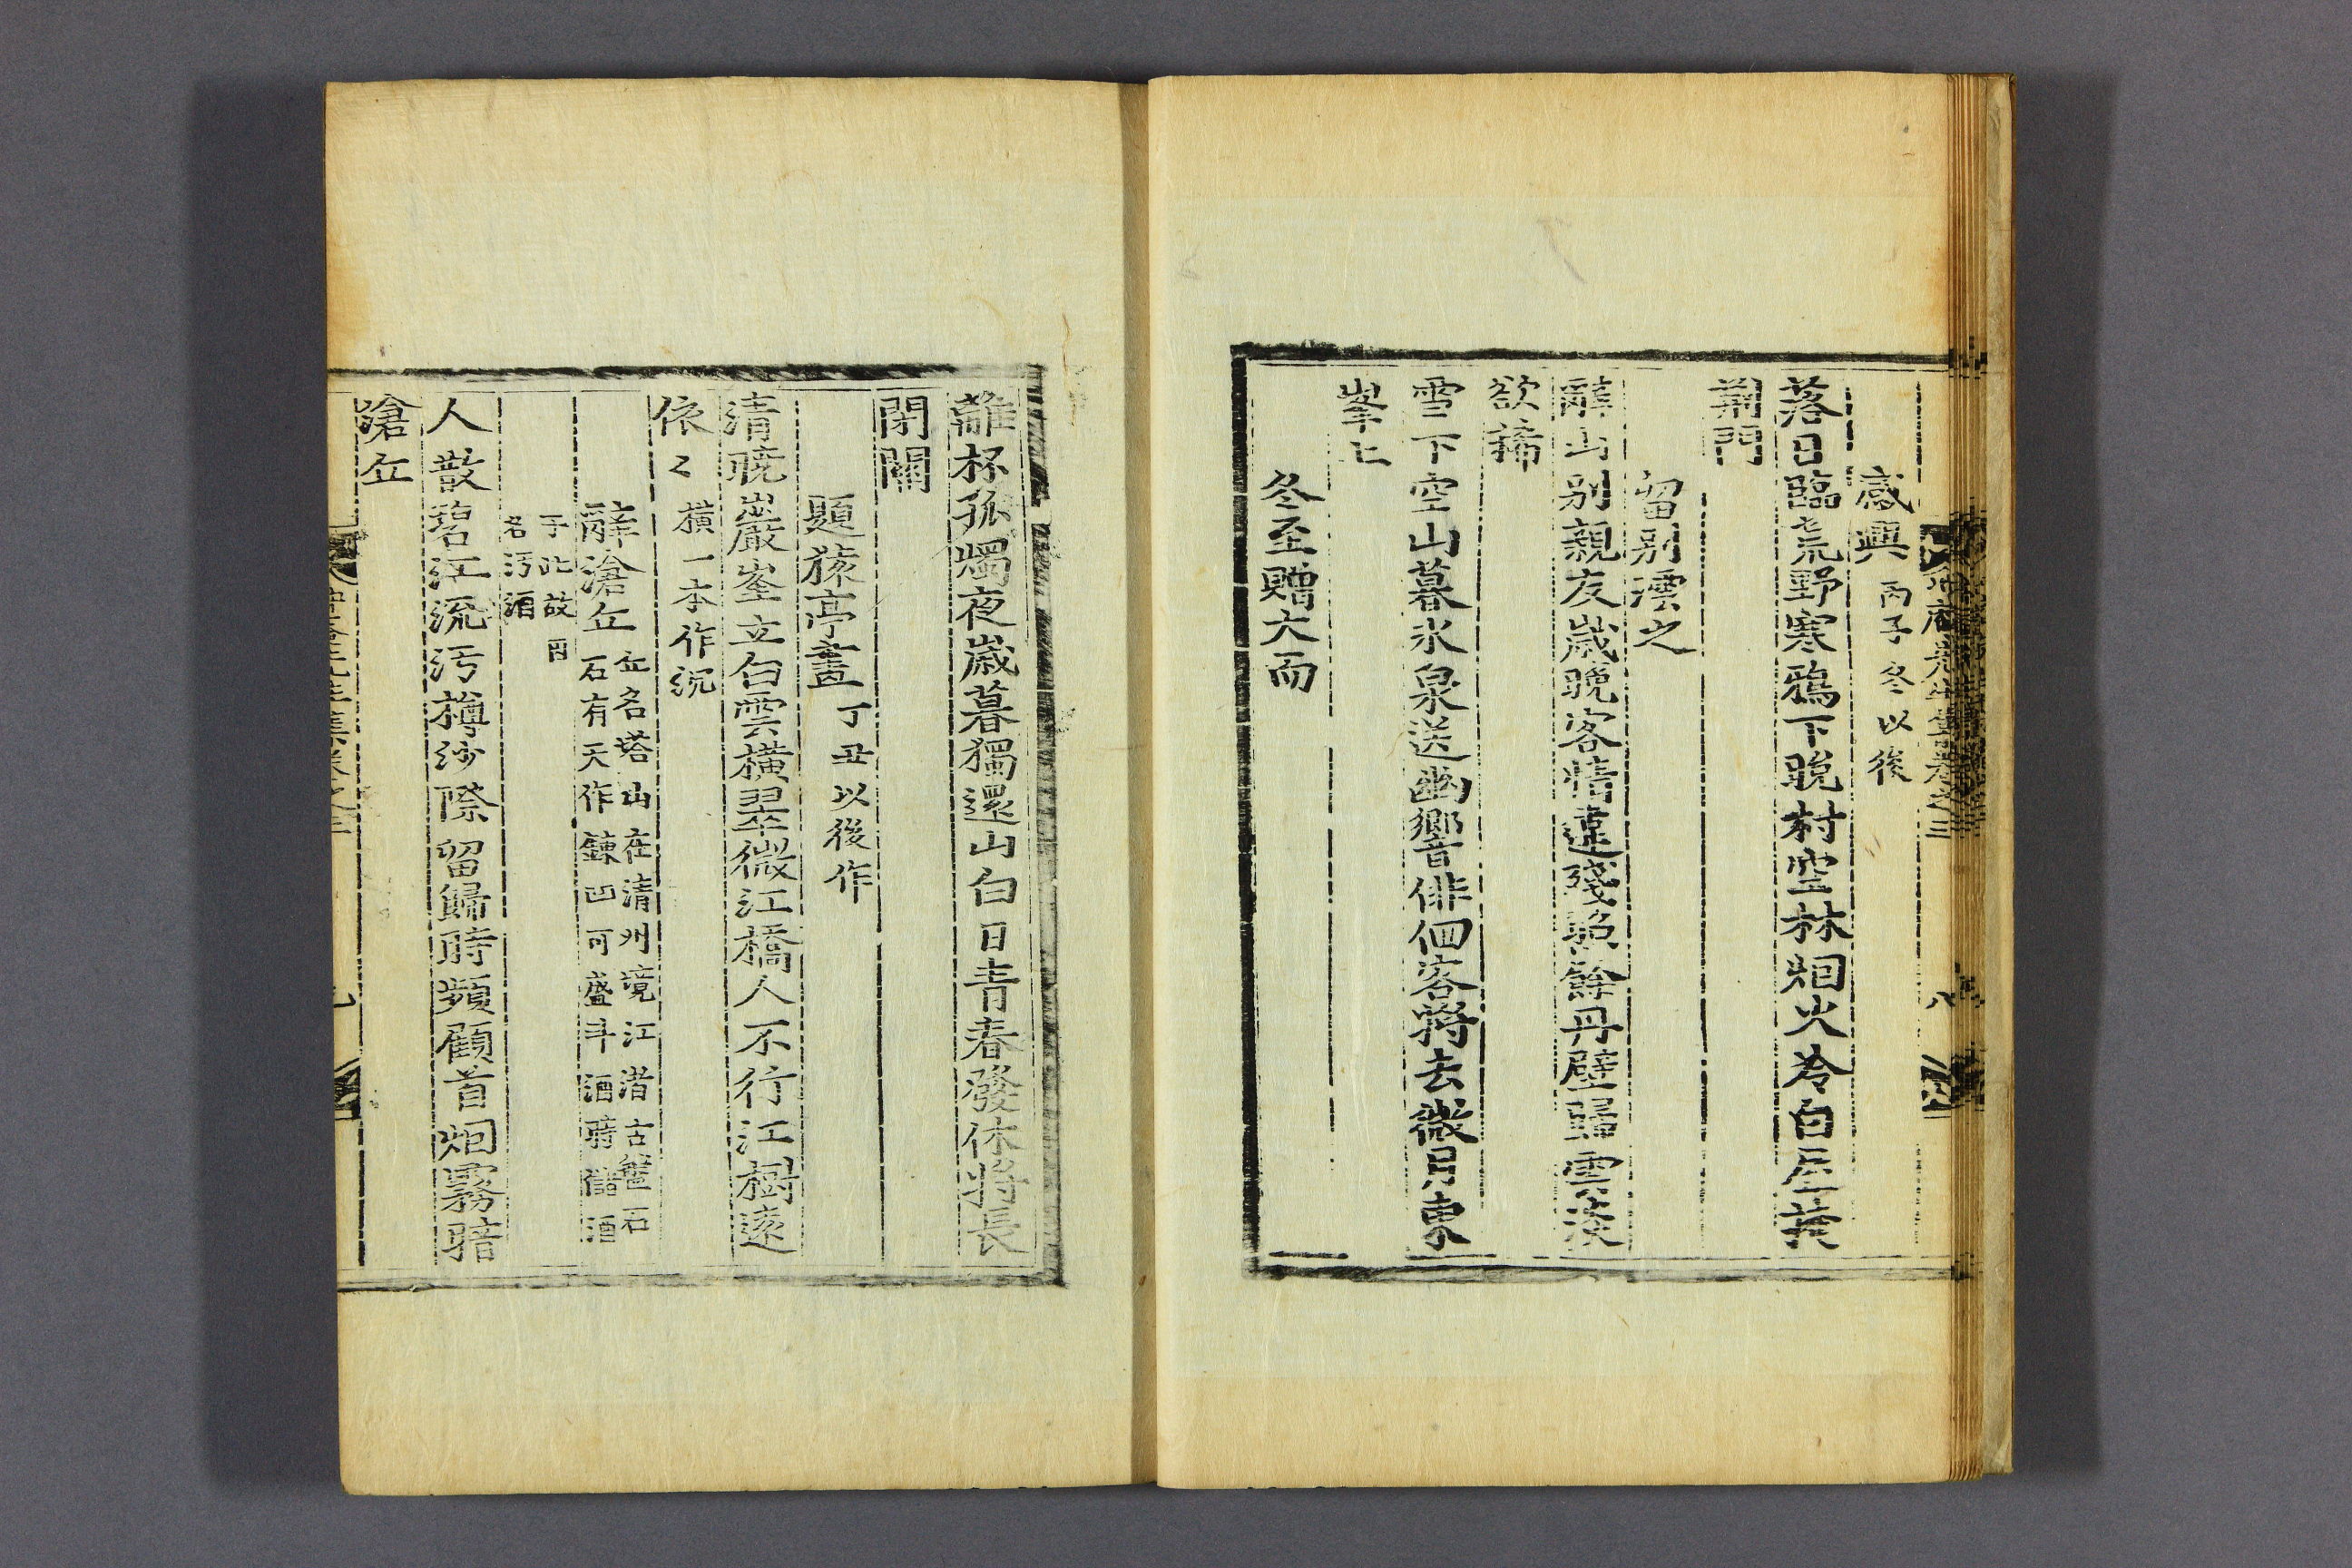 感興 丙子冬以後
落日臨荒野寒鴉下晩村空林烟火冷白屋掩
荊門
留別澐之
辭山別親友歲晩客情違殘照餘丹壁歸雲淡
欲稀
雪下空山暮氷泉送幽響徘徊客將去微月東
峯上
冬至贈大而
離杯孤燭夜歲暮獨還山白日青春發休將長
閉關
題猿亭畫 丁丑以後作
清曉巖崟立白雲橫翠微江橋人不行江樹遠
依〻 橫一本作沉
辭滄丘 丘名塔山在清州境江渚古盤石
石有天作鍊凹可盛斗酒時儲酒
于此故 
名汚酒
人散碧江流汚樽沙際留歸時頻顧首烟霧暗
滄丘